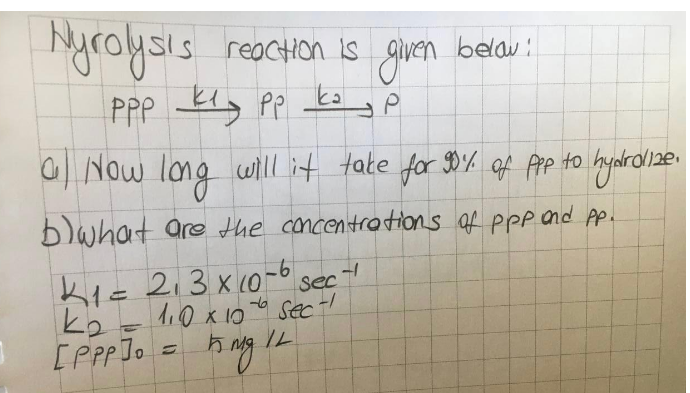 Nyrolysis reaction is given below:
PPP k1 PP k2 P
a) Now long will it take for 90% of PPP to hydrolize.
b) what are the concentrations of PPP and PP.
K1 = 2,3 x 10^-6 sec^-1
K2 = 1,0 x 10^-6 sec^-1
[PPP]0 = 5 mg/L